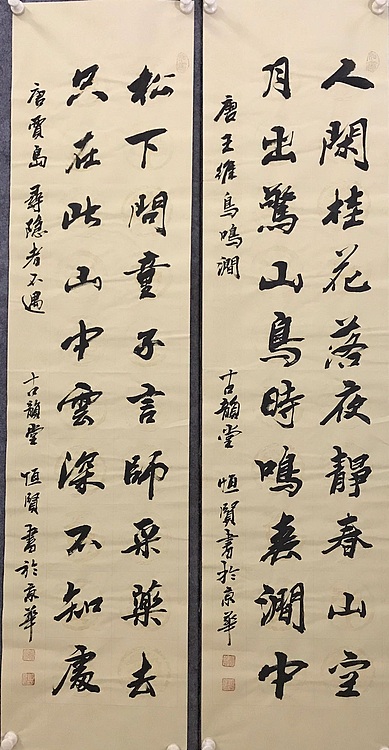 人閑桂花落夜靜春山空
月出驚山鳥時鳴春澗中
唐王維鳥鳴澗 古韻堂 恒賢書於京華
松下問童子言師采藥去
只在此山中雲深不知處
唐賈島 尋隐者不遇 古韻堂 恒賢書於京華